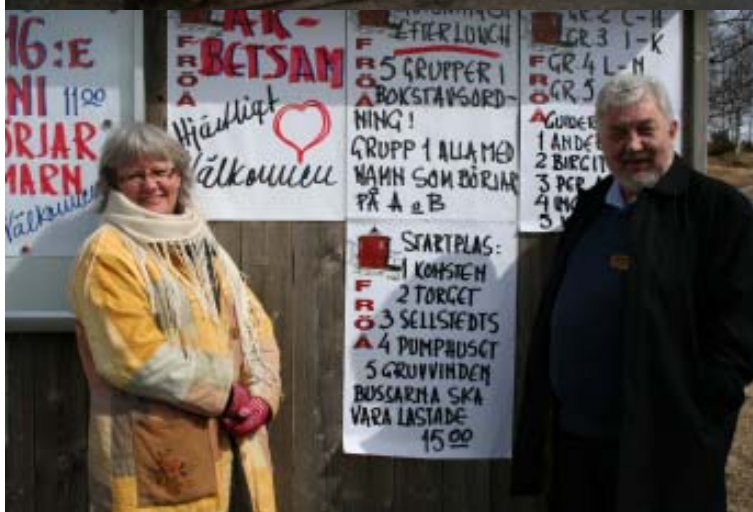 16:E
NI 11⁰⁰
ÖRJAR
MARN
Välkommen
AR-
BETSAM
FRÖÅ
Hjärtligt
Välkommen
EFTER LUNCH
FRÖÅ
5 GRUPPER I
BOKSTAVSORD-
NING!
GRUPP 1 ALLA MED
NAMN SOM BÖRJAR
PÅ A o B
GR 2 C-H
GR 3 I-K
GR 4 L-N
GR 5
FRÖÅ
GUIDER
1 ANDE
2 BIRGIT
3 PER
4 ING
5
STARTPLAS:
FRÖÅ
1 KONSTEN
2 TORGET
3 SELLSTEDTS
4 PUMPHUSET
5 GRUVVINDEN
BUSSARNA SKA
VARA LASTADE
15⁰⁰